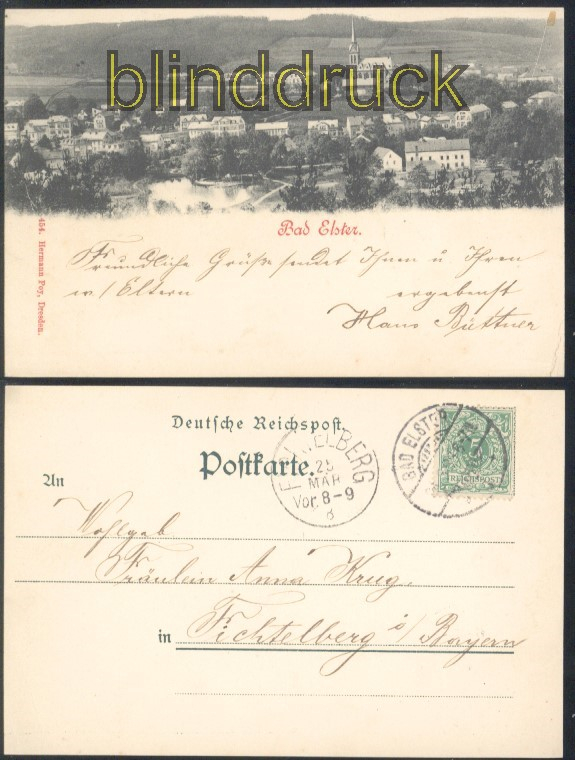 blinddruck
Bad Elster.
454. Hermann Poy, Dresden.
Freundliche Grüße sendet Ihnen u Ihren
w/ Eltern ergebenst
Hans Büttner
Deutsche Reichspost.
Postkarte.
BAD ELSTER
REICHSPOST
FICHTELBERG
25
MAR
Vor. 8-9
An
Wohlgeb.
Fräulein Anna Krug.
in Fichtelberg i/ Bayern